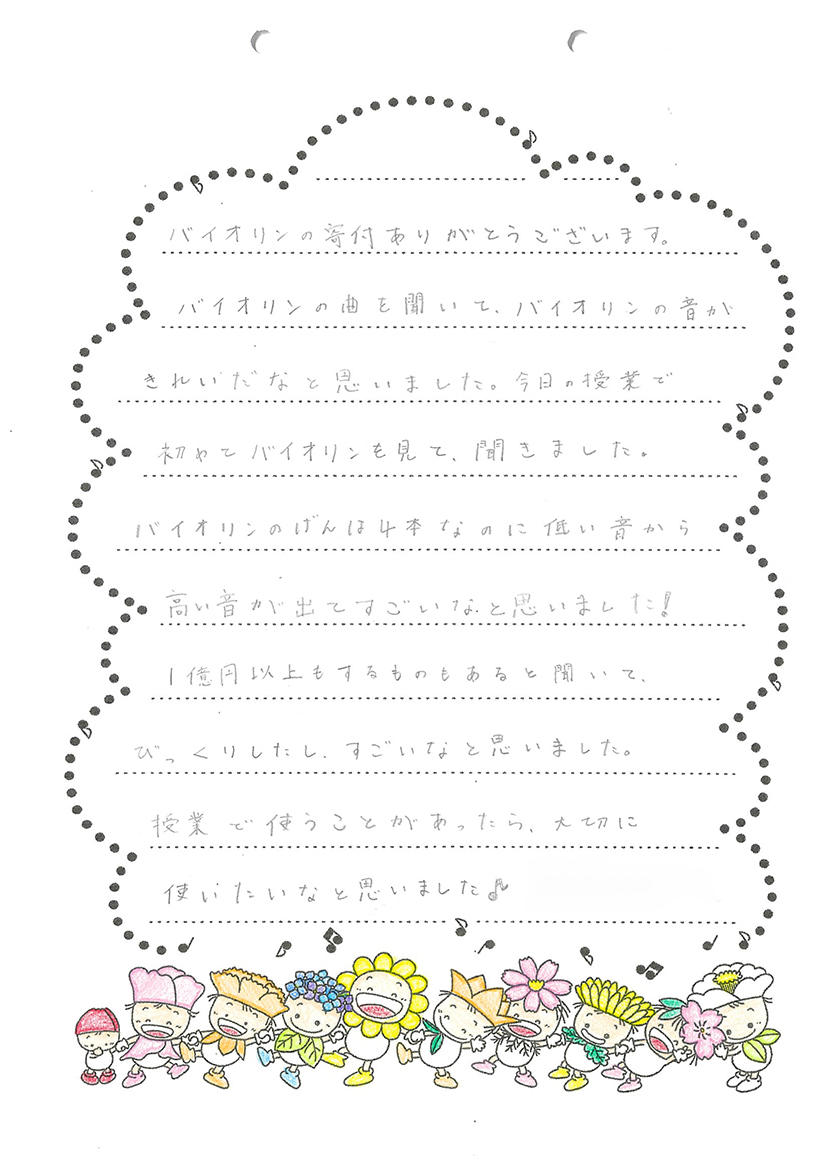 バイオリンの寄付ありがとうございます。
バイオリンの曲を聞いて、バイオリンの音が
きれいだなと思いました。今日の授業で
初めてバイオリンを見て、聞きました。
バイオリンのげんは4本なのに低い音から
高い音が出てすごいなと思いました!
1億円以上もするものもあると聞いて、
びっくりしたし、すごいなと思いました。
授業で使うことがあったら、大切に
使いたいなと思いました♪